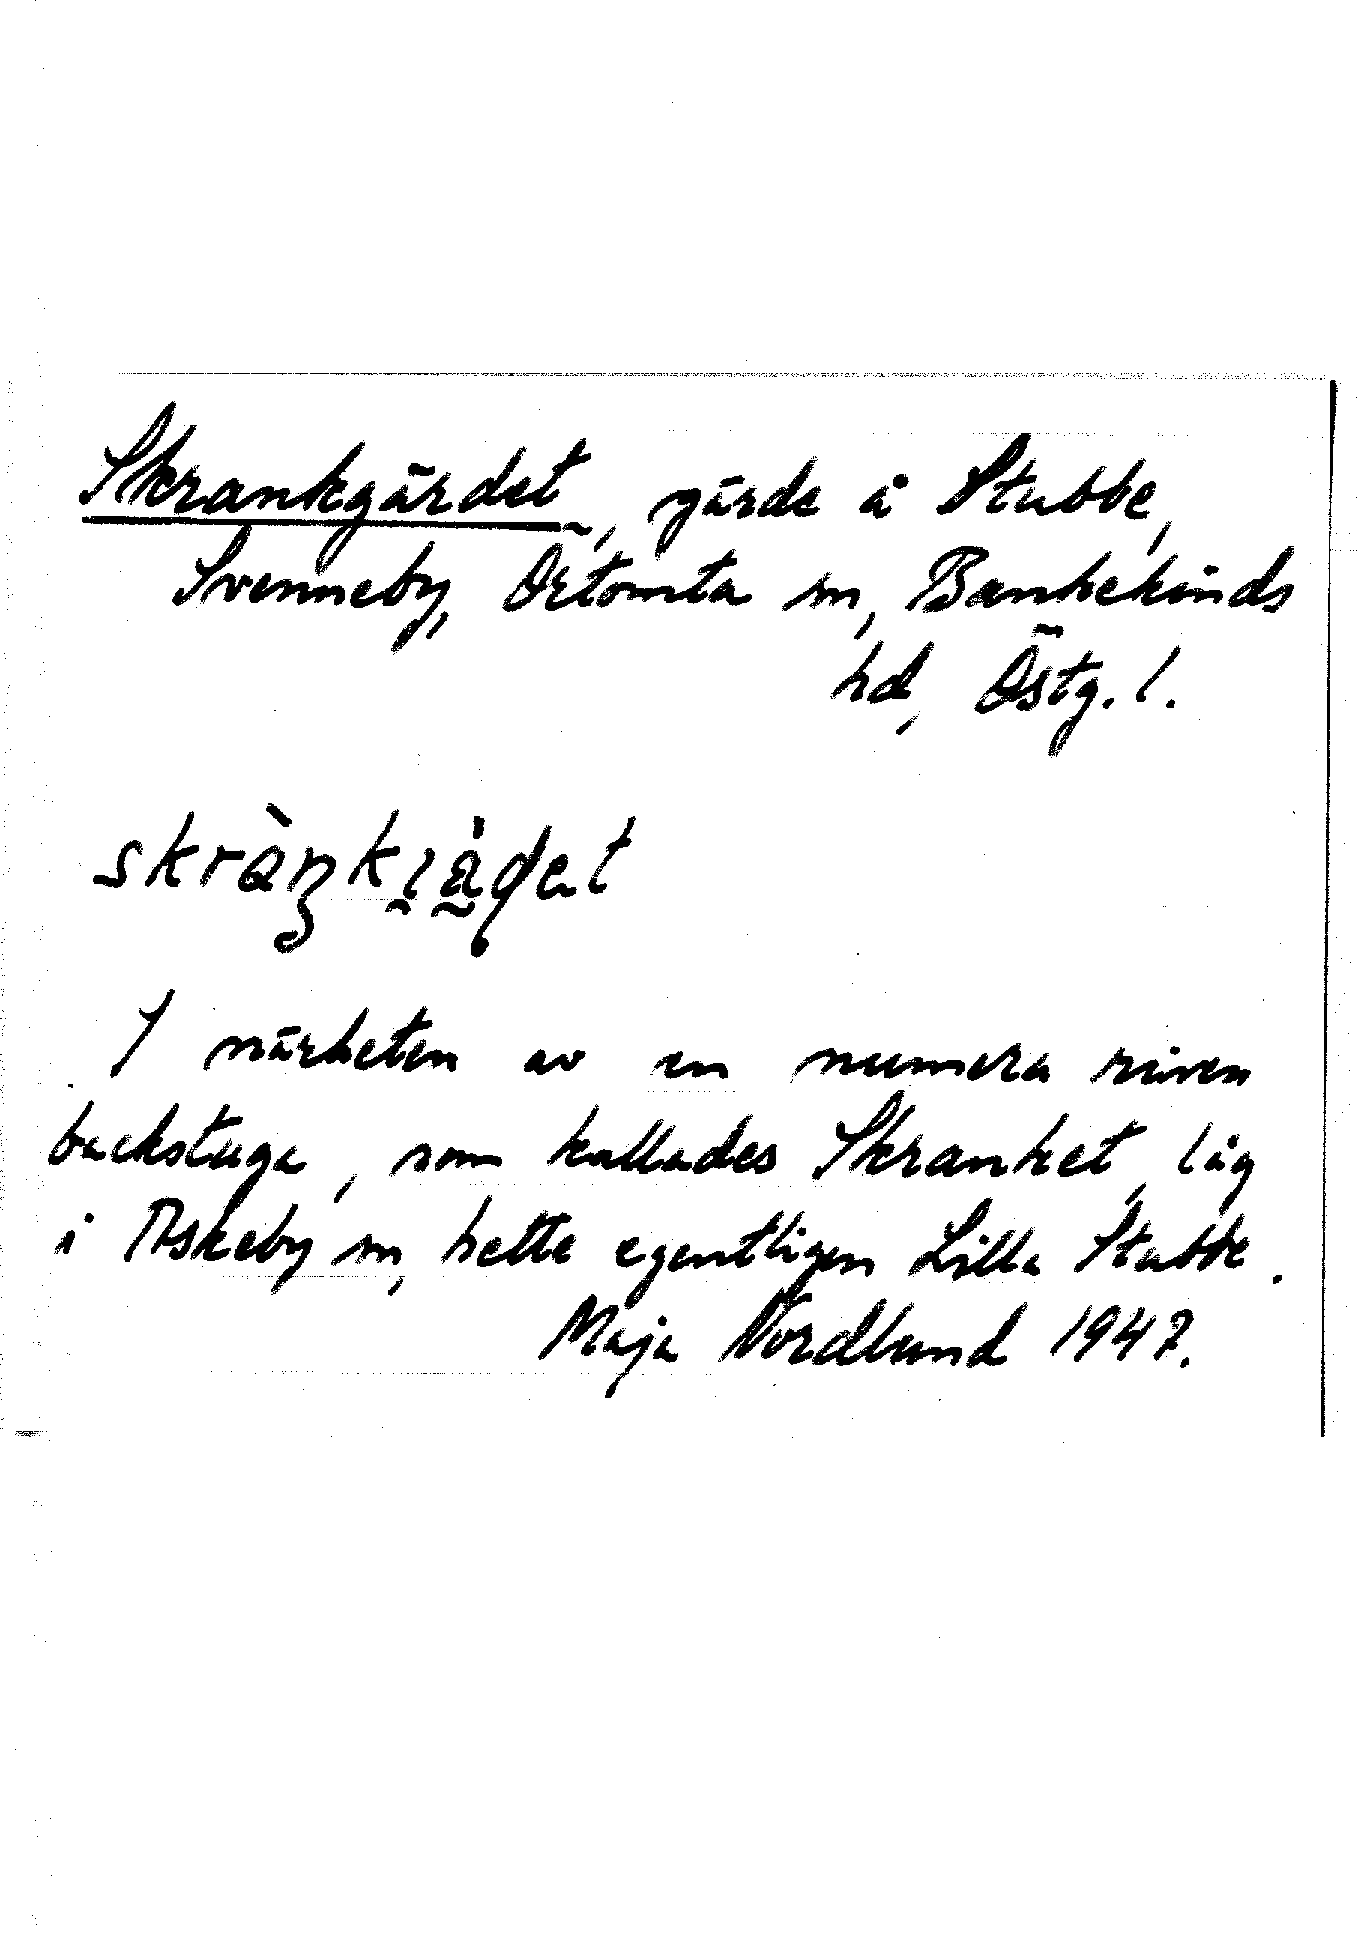 Skrankgärdet, gärde å Stubbe,
Svenneby, Örtomta sn, Bankekinds
hd, Östg. l.
skràŋkı̯å̀ḍət
I närheten av en numera riven
backstuga, som kallades Skranket, låg
i Askeby sn, hette egentligen Lilla Stubbe.
Maja Nordlund 1947.